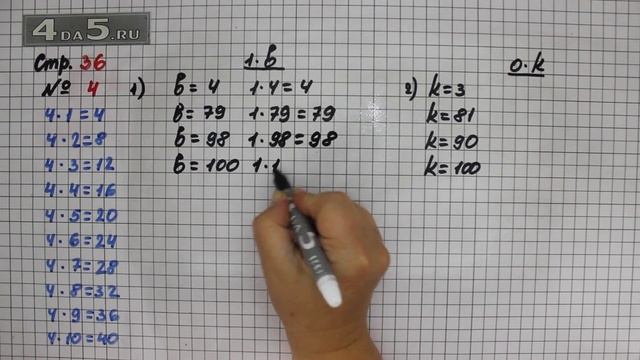 4DA5.RU
Стр. 36
№ 4
4·1=4
4·2=8
4·3=12
4·4=16
4·5=20
4·6=24
4·7=28
4·8=32
4·9=36
4·10=40
1) 1·b
b=4 1·4=4
b=79 1·79=79
b=98 1·98=98
b=100 1·1
2) 0·k
k=3
k=81
k=90
k=100